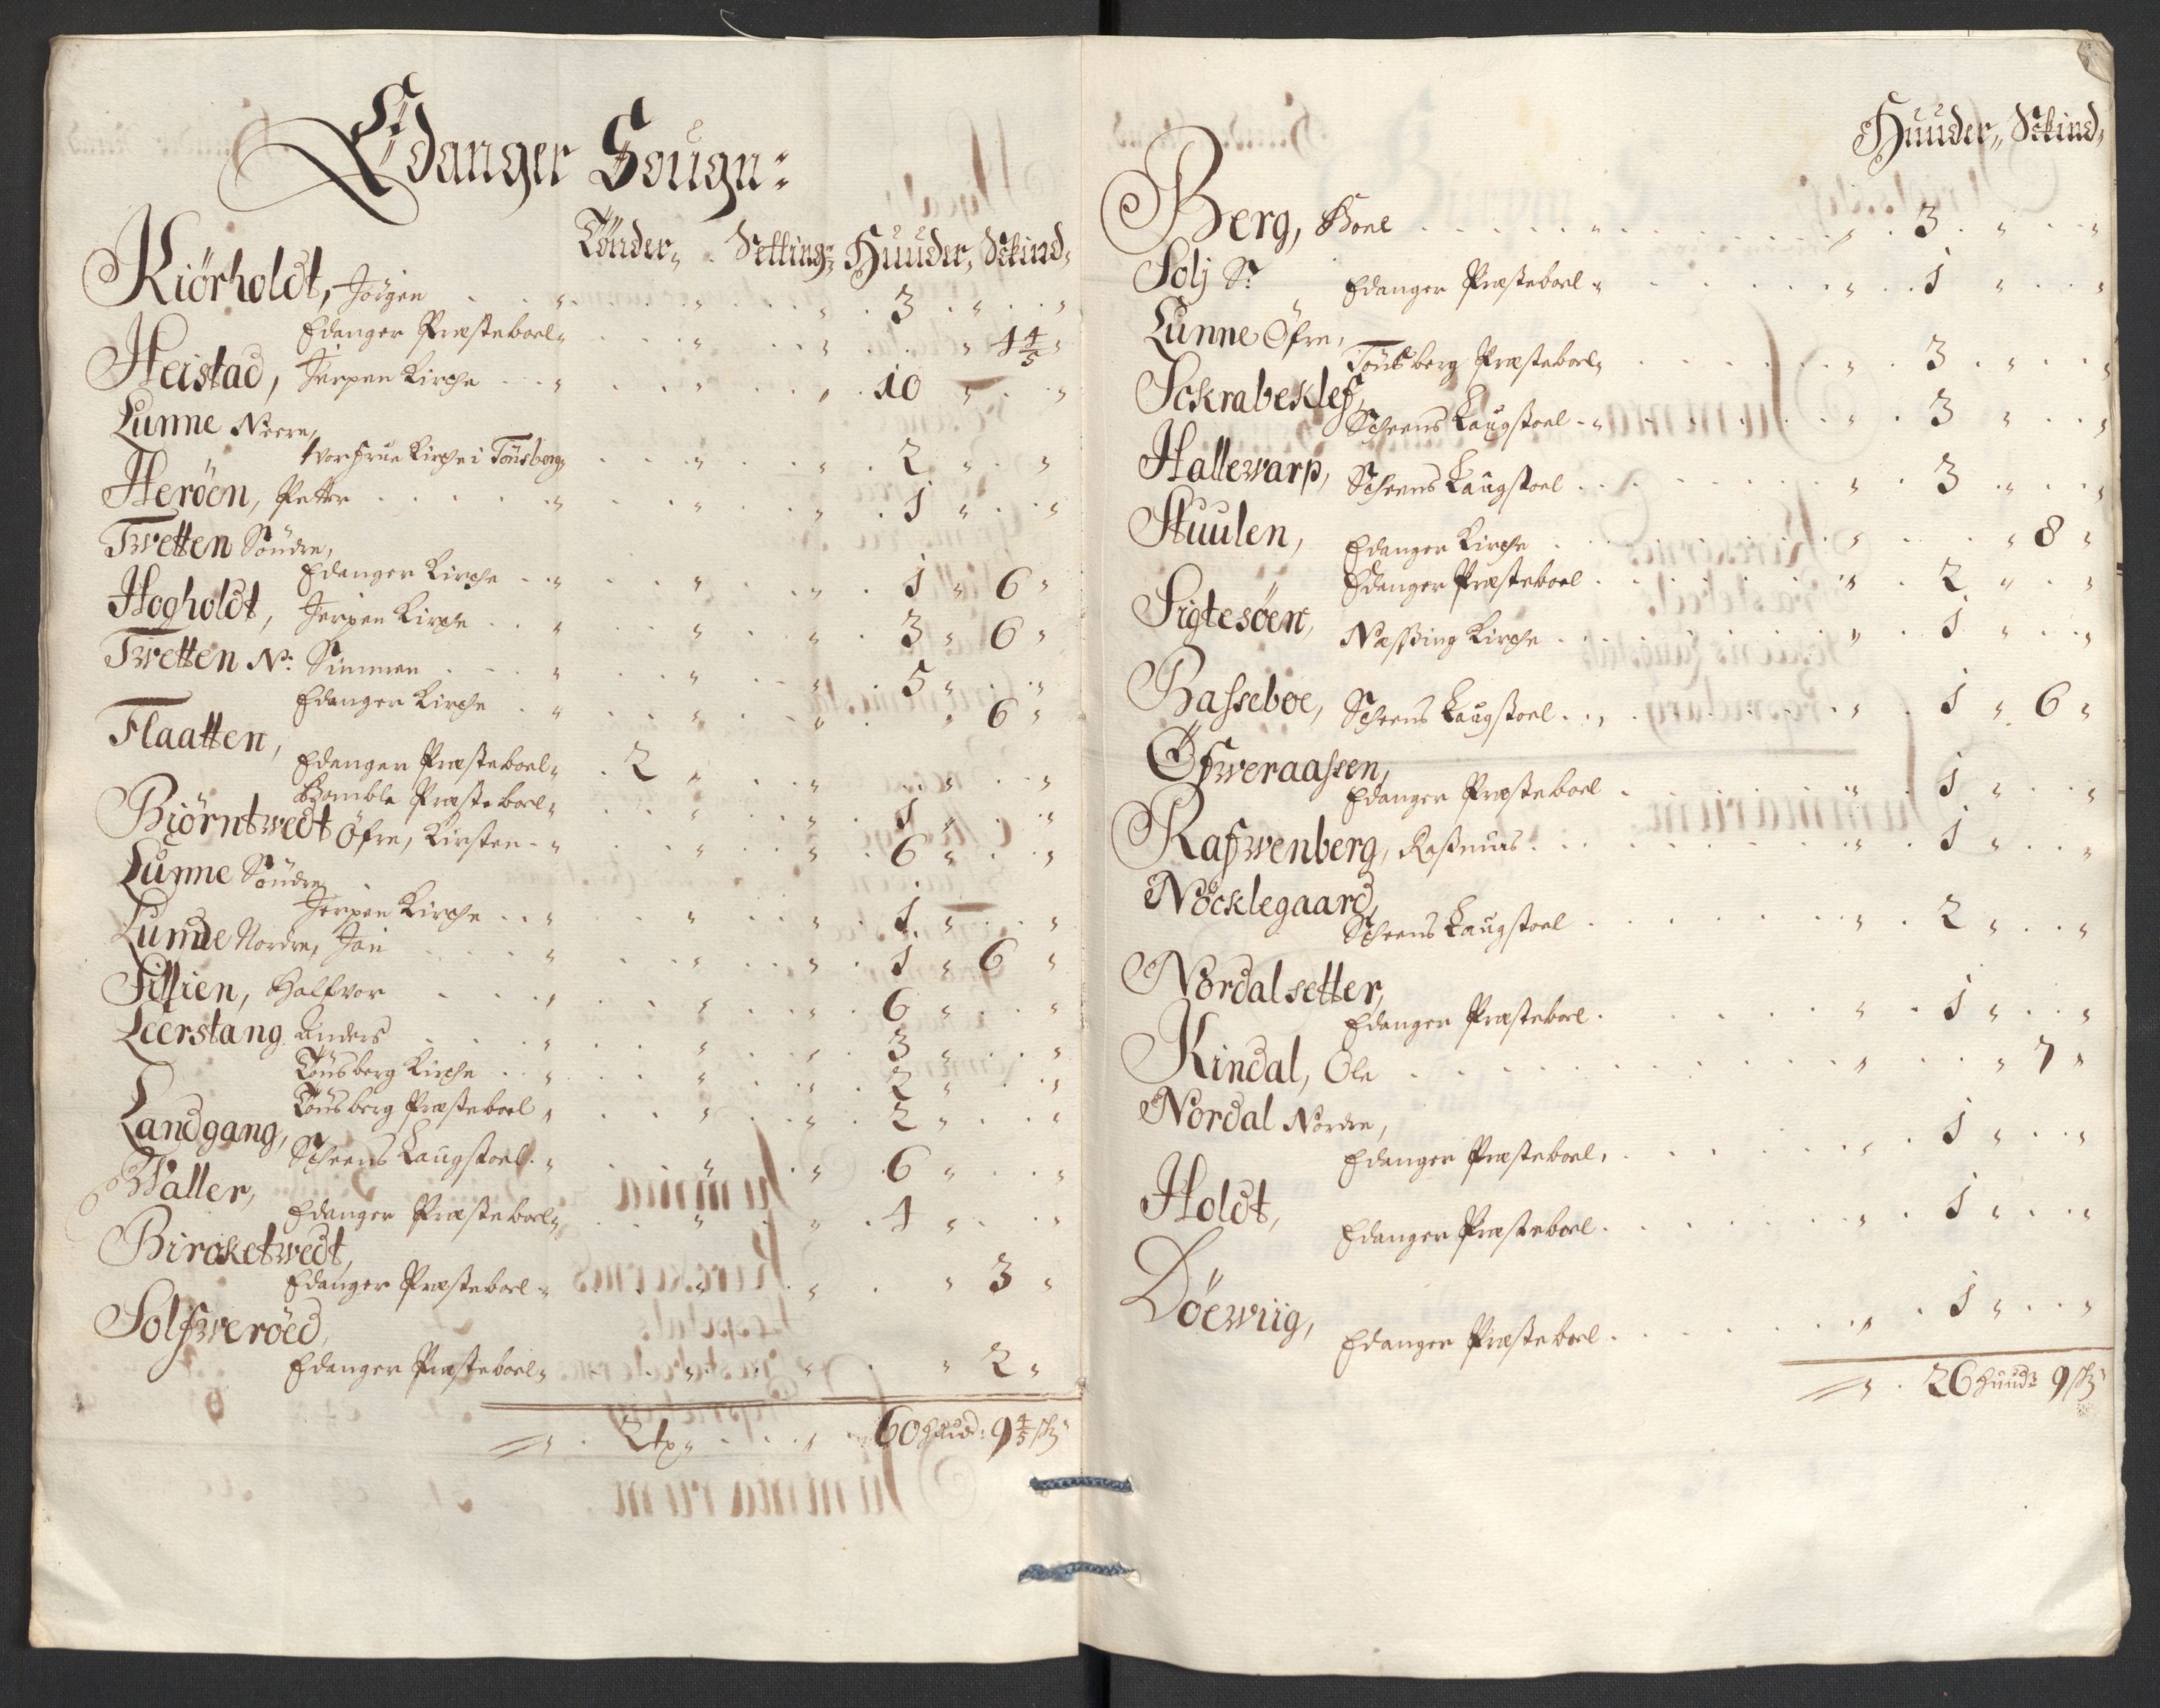 Edanger Sougn:
Tönder„ Setting: Huuder„ Sckind„
Kiörholdt, Jörgen „ „ „ 3 „ „
Edanger Præsteboel„ „ „ „ 4 4/5 „
Heistad, Jerpen Kirche „ „ „ 10 „ „
Lunne Neere,
Vor frue Kirche i Tönsberg„ „ „ 2 „ „
Heröen, Petter „ „ „ 1 „ „
Twetten Söndre,
Edanger Kirche „ „ „ 1 „ 6 „
Hogholdt, Jerpen Kirche „ „ „ 3 „ 6 „
Twetten Nr: Simmen „ „ „ 5 „ „
Edanger Kirche „ „ „ „ 6 „
Flaatten,
Edanger Præsteboel„ 2 „ „ „ „
Bamble Præsteboel„ „ „ 1 „ „
Biörntwedt Öfre, Kirsten „ „ „ 6 „ „
Lunne Söndre,
Jerpen Kirche „ „ „ 1 „ „
Lunde Nordre, Jan „ „ „ 1 „ 6 „
Sillien, Halfvor „ „ „ 6 „ „
Leerstang Anders „ „ „ 3 „ „
Tönsberg Kirche „ „ „ 2 „ „
Tönsberg Præsteboel „ „ „ 2 „ „
Landgang,
Scheens Laugstoel „ „ „ 6 „ „
Waller,
Edanger Præsteboel„ „ „ 4 „ „
Bircketwedt,
Edanger Præsteboel „ „ „ „ 3 „
Solfweröed,
Edanger Præsteboel„ „ „ „ 2 „
„ 2 tr „ 60 huud: 9 4/5 sk:
Huuder„ Sckind„
Berg, Boel „ „ 3 „ „
Solj Sr Edanger Præsteboel „ „ 1 „ „
Lunne Öfre,
Tönsberg Præsteboel„ „ 3 „ „
Sckrabeklef,
Scheens Laugstoel „ „ 3 „ „
Hallewarp, Scheens Laugstoel „ 3 „ „
Stuulen, Edanger Kirche „ „ 8 „
Edanger Præsteboel „ 2 „ „
Sigtesöen, Næssing Kirche „ 1 „ „
Basseboe, Scheens Laugstoel „ 1 „ 6 „
Öfweraassen,
Edanger Præsteboel „ 1 „ „
Rafwenberg, Rasmus „ 1 „ „
Nöcklegaard,
Scheens Laugstoel „ 2 „ „
Nordalsetter,
Edanger Præsteboel „ 1 „ „
Kindal, Ole „ „ 7 „
Nordal Nordre,
Edanger Præsteboel „ 1 „ „
Holdt,
Edanger Præsteboel „ 1 „ „
Döewiig,
Edanger Præsteboel „ 1 „ „
„ 26 huud: 9 sk: